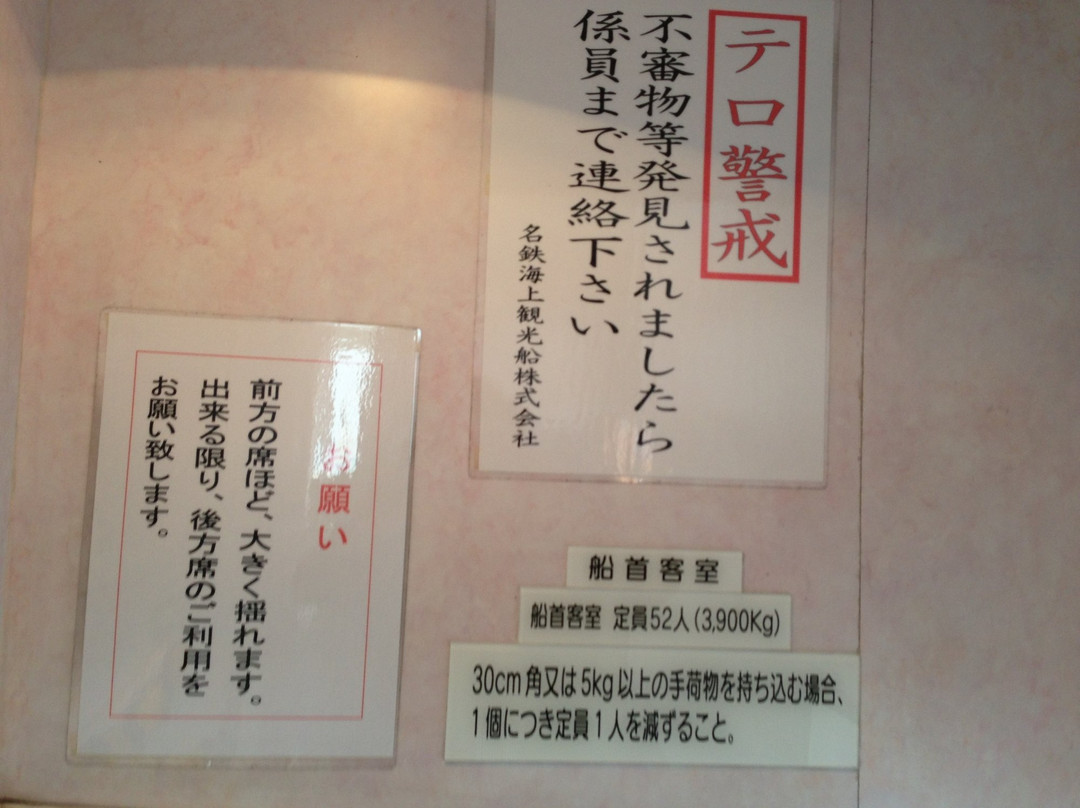 テロ警戒
不審物等発見されましたら
係員まで連絡下さい
名鉄海上観光船株式会社
お願い
前方の席ほど、大きく揺れます。
出来る限り、後方席のご利用を
お願い致します。
船首客室
船首客室 定員52人(3,900Kg)
30cm角又は5kg以上の手荷物を持ち込む場合、
1個につき定員1人を減ずること。